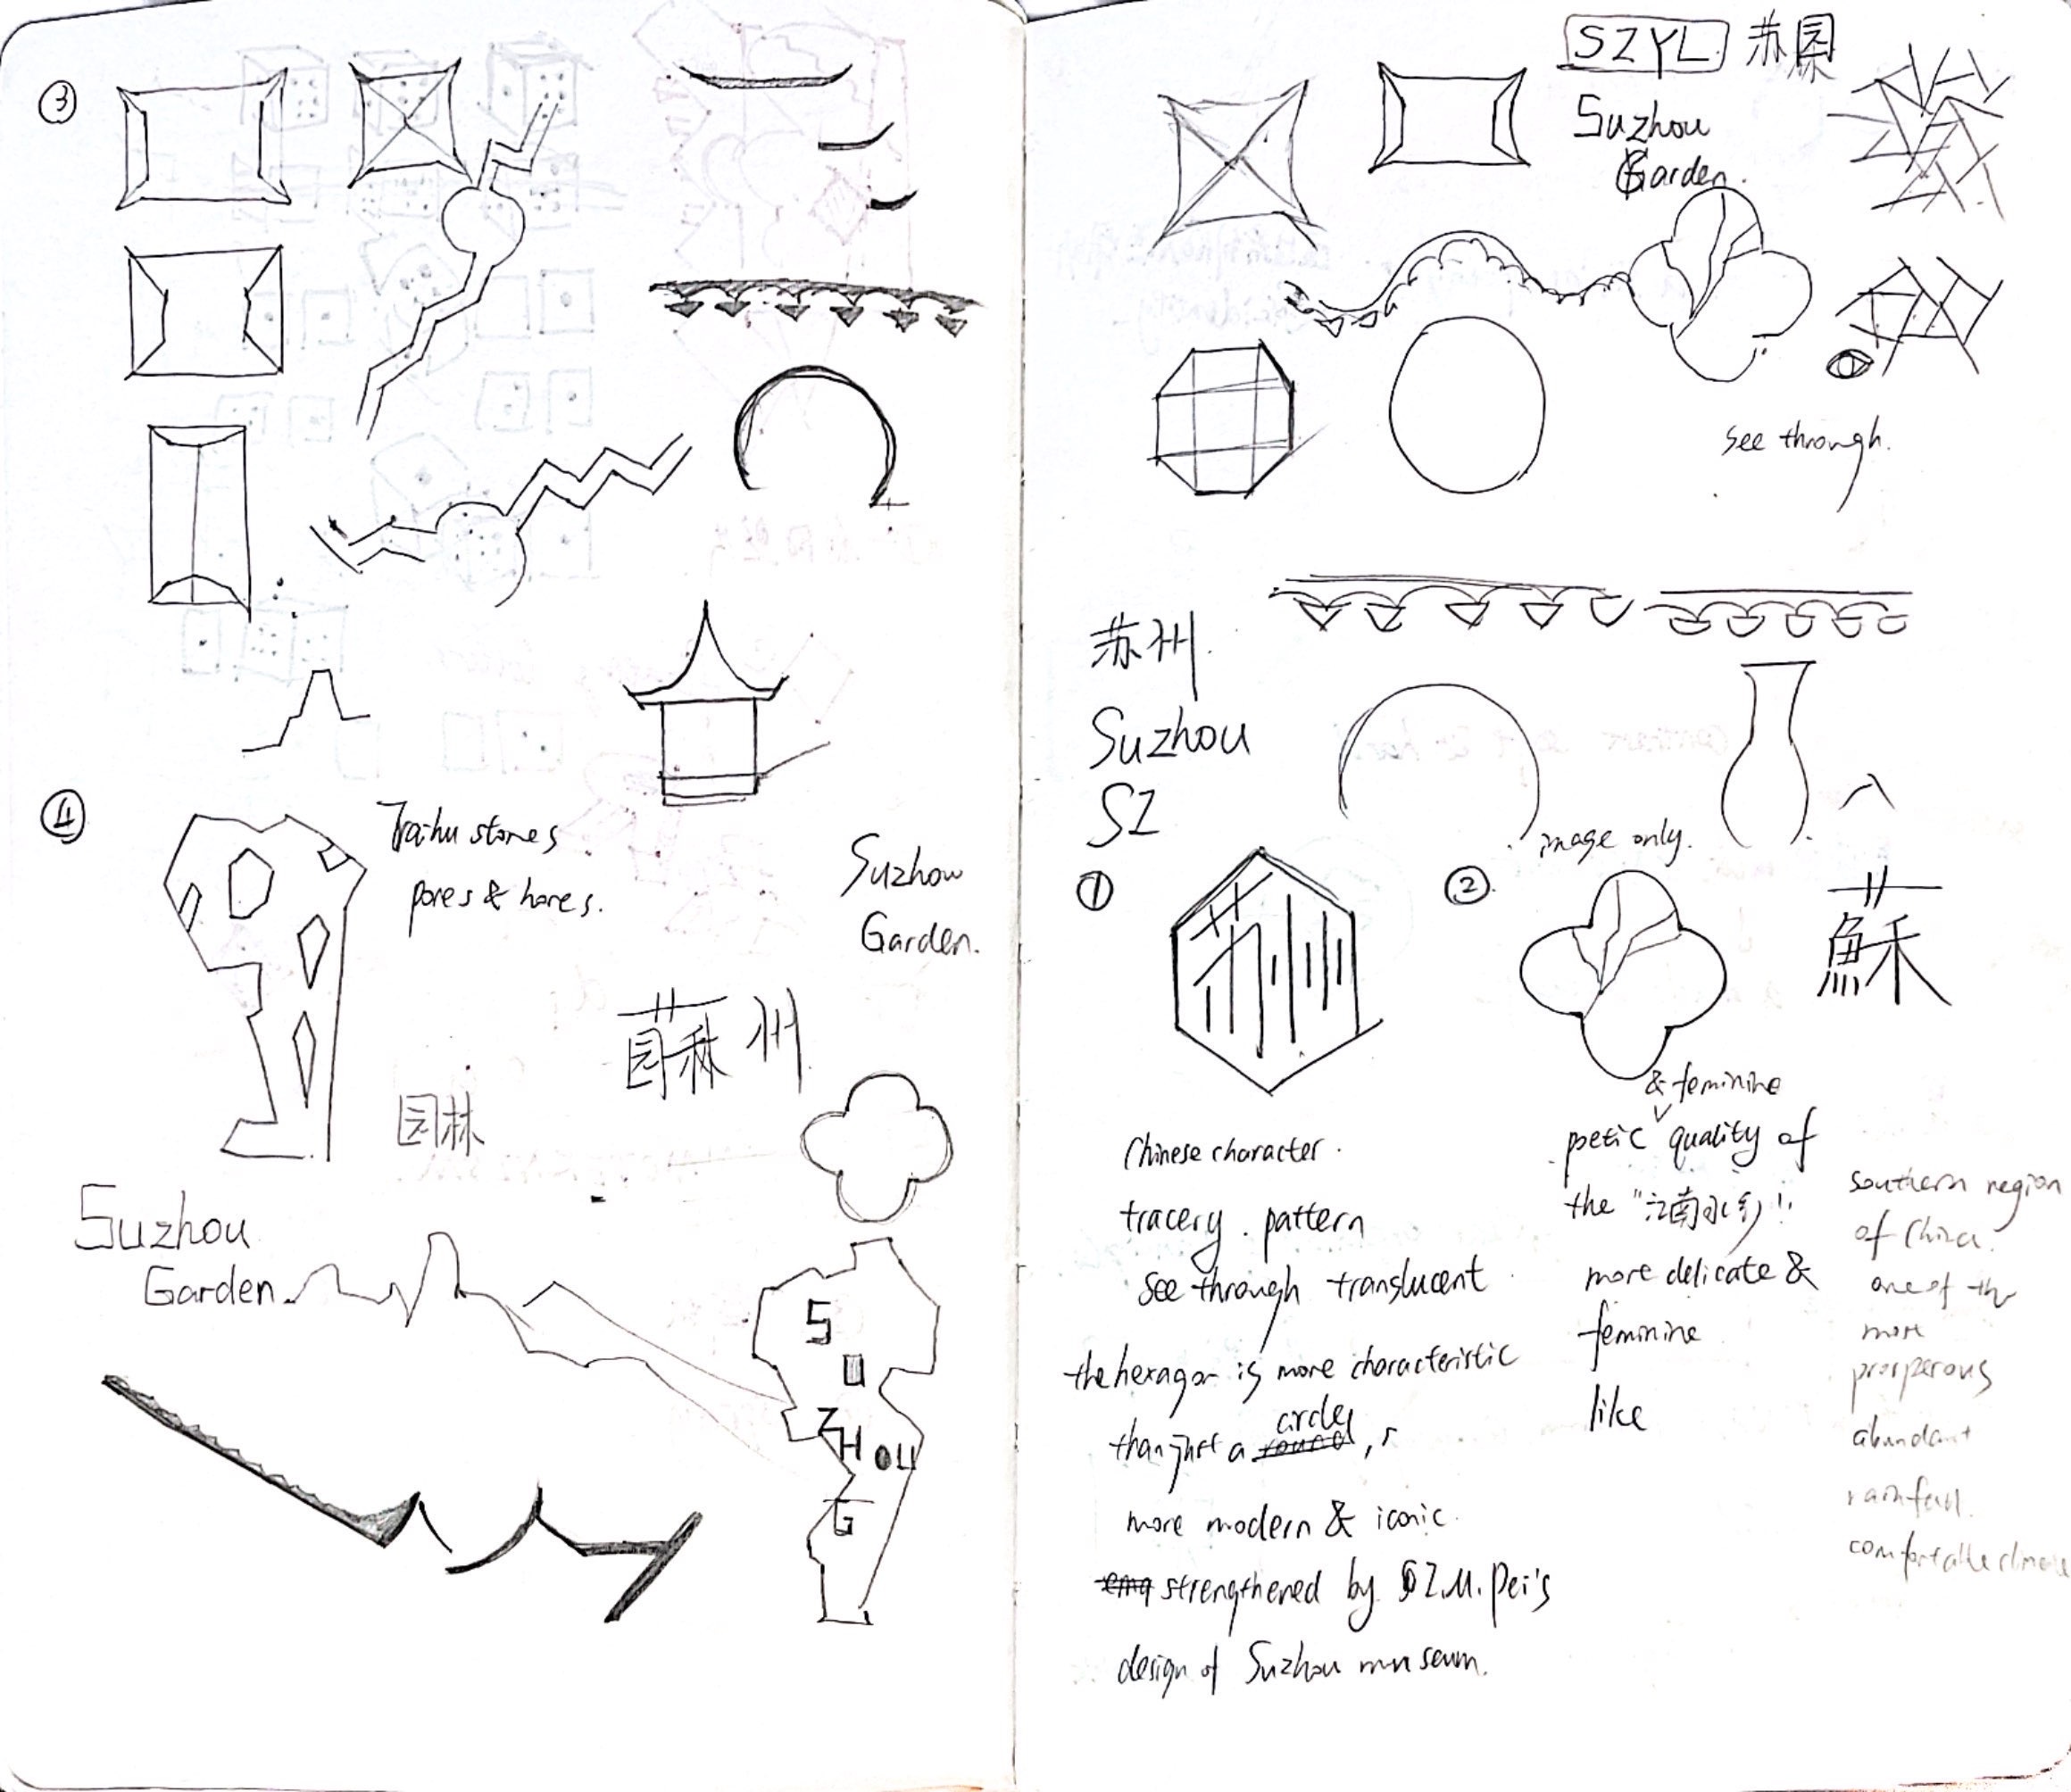 ③
④
Taihu stones
pores & hones.
Suzhou
Garden.
园林
州
Suzhou
Garden
S
U
Z
H
OU
G
SZYL 苏园
Suzhou
Garden.
see through.
苏州.
Suzhou
SZ
image only.
①
②
蘇
苏州
Chinese character.
tracery. pattern
see through translucent
the hexagon is more characteristic
than just a round circle, r
more modern & iconic.
strengthened by I.M. Pei's
design of Suzhou museum.
& feminine
poetic quality of
the "江南水乡"
more delicate &
feminine
like
southern region
of China.
one of the
most
prosperous
abundant
rainfall.
comfortable climate